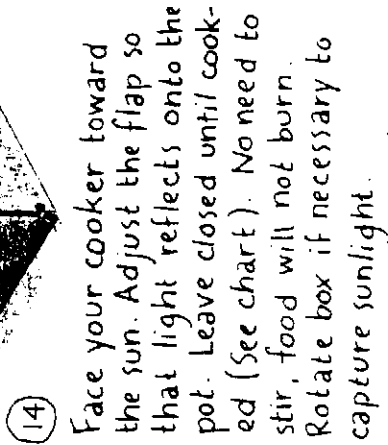 14
Face your cooker toward
the sun. Adjust the flap so
that light reflects onto the
pot. Leave closed until cook-
ed (See chart). No need to
stir, food will not burn.
Rotate box if necessary to
capture sunlight.